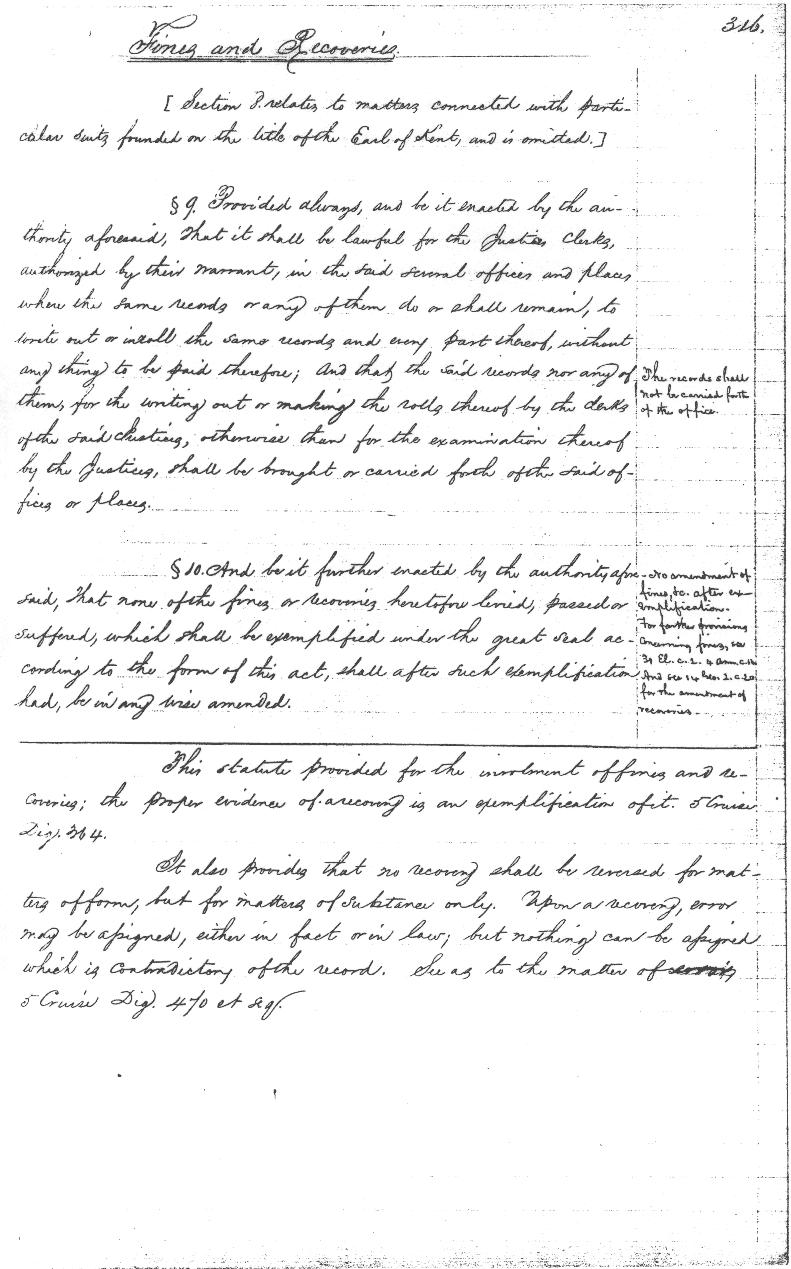 316.
Fines and Recoveries.
[ Section 8. relates to matters connected with parti-
cular suits founded on the title of the Earl of Kent, and is omitted. ]
§ 9. Provided always, and be it enacted by the au-
thority aforesaid, That it shall be lawful for the Justices Clerks,
authorized by their warrant, in the said several offices and places
where the same records or any of them do or shall remain, to
write out or inroll the same records and every part thereof, without
any thing to be paid therefore; And that the said records nor any of
them, for the writing out or making the rolls thereof by the clerks
of the said Justices, otherwise than for the examination thereof
by the Justices, shall be brought or carried forth of the said of-
fices or places.
The records shall
not be carried forth
of the office.
§ 10. And be it further enacted by the authority afore-
said, That none of the fines or recoveries heretofore levied, passed or
suffered, which shall be exemplified under the great seal ac-
cording to the form of this act, shall after such exemplification
had, be in any wise amended.
No amendment of
fines, &c. after ex-
emplification.
For further provisions
concerning fines, see
31 El. c. 2. 4 Ann. c. 16
And see 14 Geo. 2. c. 20
for the amendment of
recoveries.
This statute provided for the inrolment of fines and re-
coveries; the proper evidence of a recovery is an exemplification of it. 5 Cruise
Dig. 364.
It also provides that no recovery shall be reversed for mat-
ters of form, but for matters of substance only. Upon a recovery, error
may be assigned, either in fact or in law; but nothing can be assigned
which is contradictory of the record. See as to the matter of
5 Cruise Dig. 470 et seq.